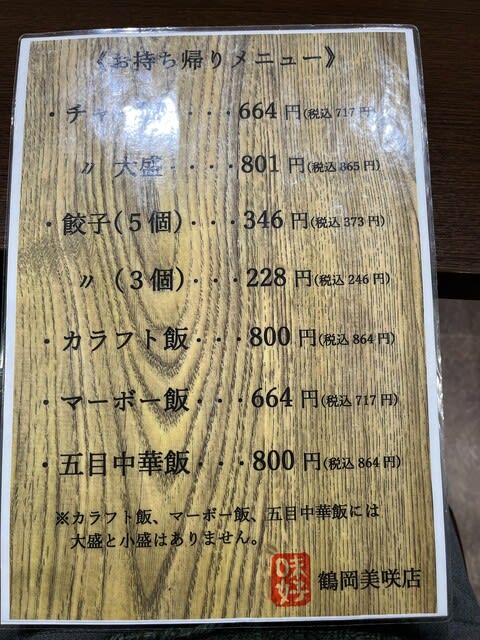 《お持ち帰りメニュー》
・チャーハン・・・664 円(税込 717 円)
〃 大盛・・・・801 円(税込 865 円)
・餃子(5個)・・・346 円(税込 373 円)
〃 (3個)・・・228 円(税込 246 円)
・カラフト飯・・・800 円(税込 864 円)
・マーボー飯・・・664 円(税込 717 円)
・五目中華飯・・・800 円(税込 864 円)
※カラフト飯、マーボー飯、五目中華飯には
大盛と小盛はありません。
味好 鶴岡美咲店